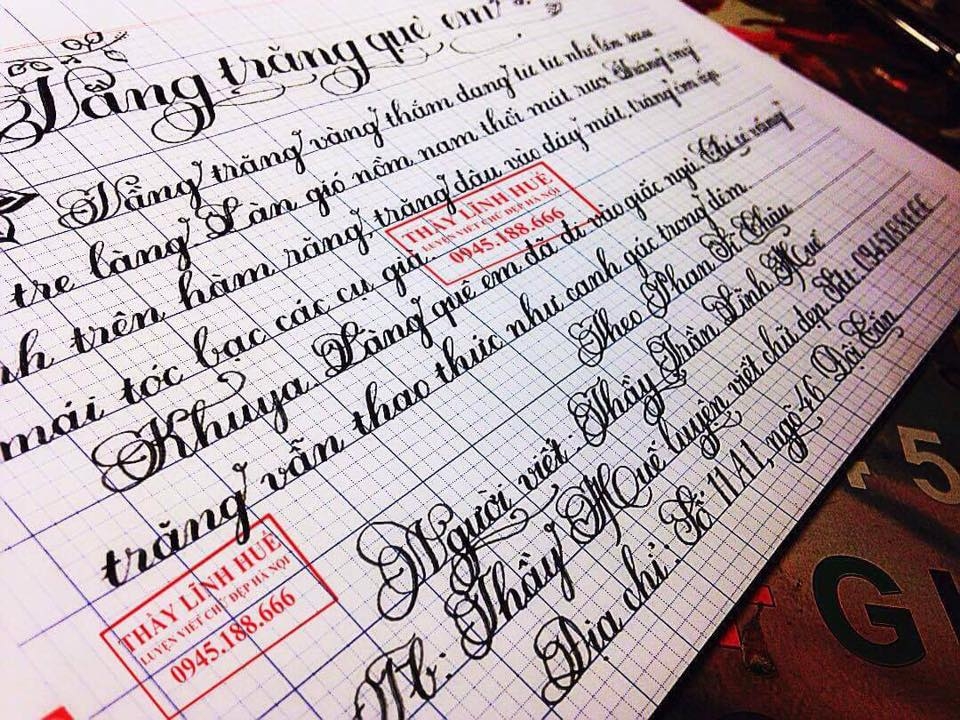 Vầng trăng quê em
Vầng trăng vàng thắm đang từ từ nhô lên sau
tre làng. Làn gió nồm nam thổi mát rượi. Tháng
trên hàm răng, trăng đậu vào đáy mắt, trăng ôm ấp
mái tóc bạc các cụ già.
THẦY LĨNH HUẾ
LUYỆN VIẾT CHỮ ĐẸP HÀ NỘI
0945.188.666
Khuya. Làng quê em đã đi vào giấc ngủ. Chỉ có vầng
trăng vẫn thao thức như canh gác trong đêm.
Theo Phan Sĩ Châu
THẦY LĨNH HUẾ
LUYỆN VIẾT CHỮ ĐẸP HÀ NỘI
0945.188.666
Người viết: Thầy Trần Lĩnh Huế
Thầy Huế luyện viết chữ đẹp
Địa chỉ: Số: 11A1, ngõ 46 Đội Cấn
5
G